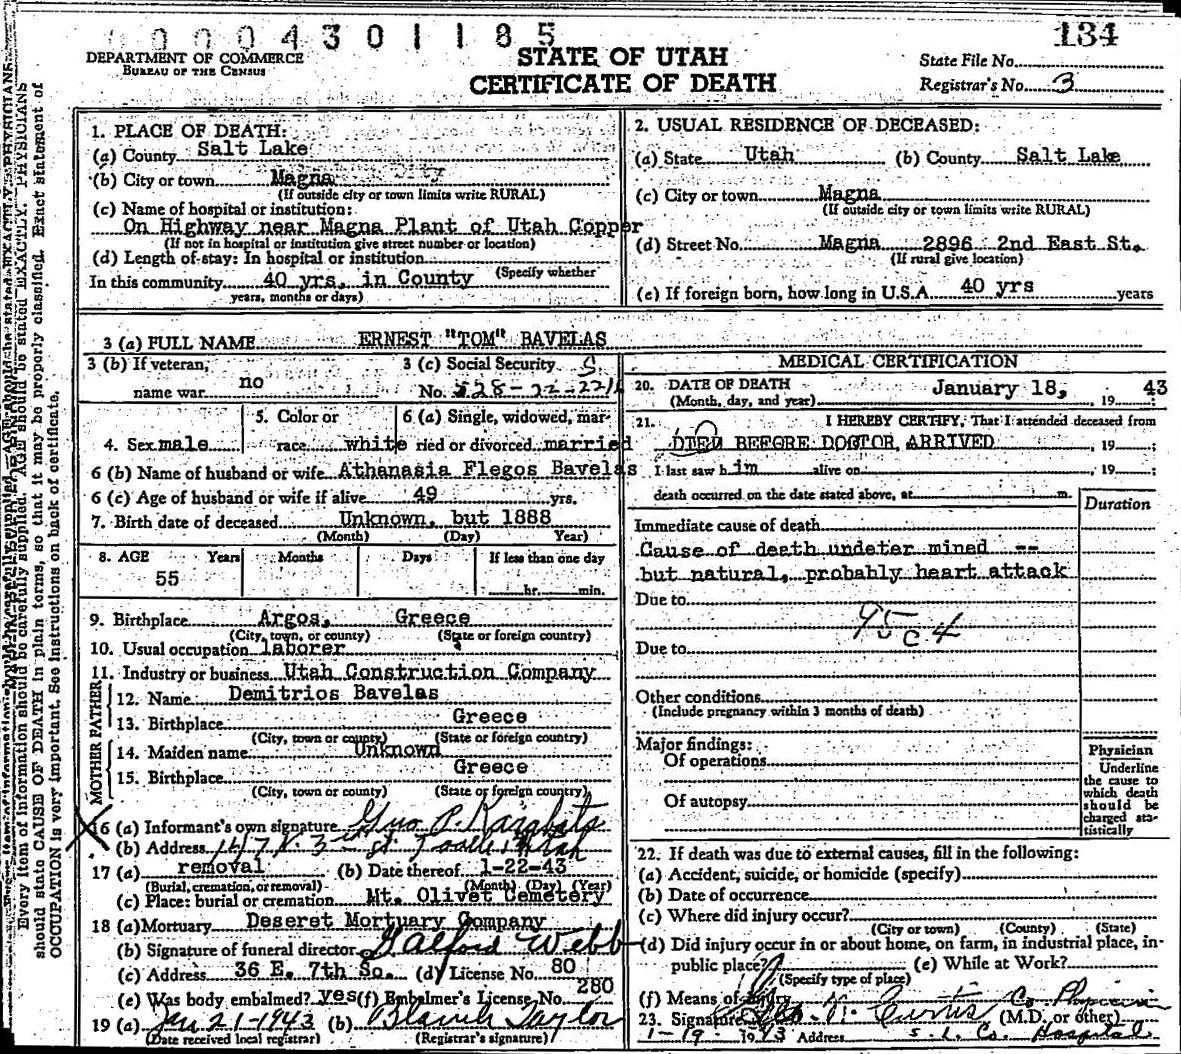 00004301185
134
DEPARTMENT OF COMMERCE
BUREAU OF THE CENSUS
STATE OF UTAH
CERTIFICATE OF DEATH
State File No.
Registrar's No. 3
Every item of information should be carefully supplied. AGE should be stated EXACTLY. PHYSICIANS
should state CAUSE OF DEATH in plain terms, so that it may be properly classified. Exact statement of
OCCUPATION is very important. See instructions on back of certificate.
1. PLACE OF DEATH:
(a) County Salt Lake
(b) City or town Magna
(If outside city or town limits write RURAL)
(c) Name of hospital or institution:
On Highway near Magna Plant of Utah Copper
(If not in hospital or institution give street number or location)
(d) Length of stay: In hospital or institution
(Specify whether
In this community 40 yrs. in County
years, months or days)
2. USUAL RESIDENCE OF DECEASED:
(a) State Utah (b) County Salt Lake
(c) City or town Magna
(If outside city or town limits write RURAL)
(d) Street No. Magna 2896 2nd East St.
(If rural give location)
(e) If foreign born, how long in U.S.A. 40 yrs years
3 (a) FULL NAME ERNEST "TOM" BAVELAS
3 (b) If veteran, name war no
3 (c) Social Security
No. 528-22-221
4. Sex male
5. Color or race white
6 (a) Single, widowed, married or divorced married
6 (b) Name of husband or wife Athanasia Flegos Bavelas
6 (c) Age of husband or wife if alive 49 yrs.
7. Birth date of deceased Unknown, but 1888
(Month) (Day) Year)
8. AGE Years Months Days If less than one day
55 hr. min.
9. Birthplace Argos, Greece
(City, town, or county) (State or foreign country)
10. Usual occupation laborer
11. Industry or business Utah Construction Company
FATHER
12. Name Demitrios Bavelas
13. Birthplace Greece
(City, town or county) (State or foreign country)
MOTHER
14. Maiden name Unknown
15. Birthplace Greece
(City, town or county) (State or foreign country)
16 (a) Informant's own signature Geo P.
(b) Address 147 N. 3 St. Tooele Utah
17 (a) removal (b) Date thereof 1-22-43
(Burial, cremation, or removal) (Month) (Day) (Year)
(c) Place: burial or cremation Mt. Olivet Cemetery
18 (a) Mortuary Deseret Mortuary Company
(b) Signature of funeral director Galford Webb
(c) Address 36 E. 7th So. (d) License No. 80
(e) Was body embalmed? yes (f) Embalmer's License No. 280
19 (a) Jan 21-1943 (b) Taylor
(Date received local registrar) (Registrar's signature)
MEDICAL CERTIFICATION
20. DATE OF DEATH January 18, 1943
(Month, day, and year)
21. I HEREBY CERTIFY, That I attended deceased from
DIED BEFORE DOCTOR ARRIVED , 19 ;
I last saw him alive on , 19 ;
death occurred on the date stated above, at m.
Duration
Immediate cause of death
Cause of death undeter mined --
but natural, probably heart attack
Due to
95c4
Due to
Other conditions
(Include pregnancy within 3 months of death)
Major findings:
Of operations
Of autopsy
Physician
Underline
the cause to
which death
should be
charged sta-
tistically
22. If death was due to external causes, fill in the following:
(a) Accident, suicide, or homicide (specify)
(b) Date of occurrence
(c) Where did injury occur?
(City or town) (County) (State)
(d) Did injury occur in or about home, on farm, in industrial place, in-
public place? (e) While at Work?
(Specify type of place)
(f) Means of Injury
23. Signature Curtis Co. Physician
(M.D. or other)
1-19 1943 Address S. L. Co. Hospital